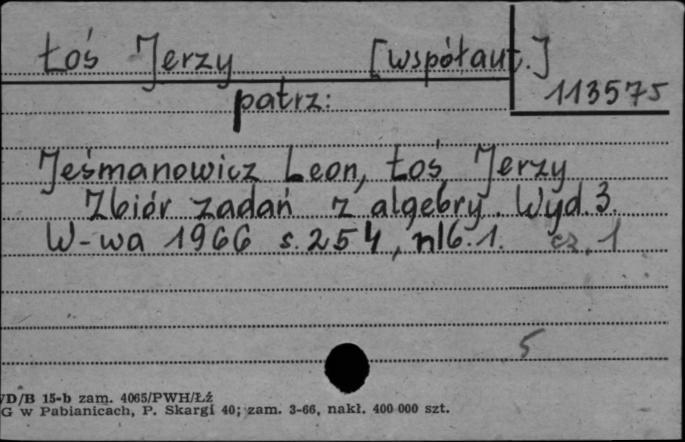 Łoś Jerzy [współaut.]
113575
patrz:
Jeśmanowicz Leon, Łoś Jerzy
Zbiór zadań z algebry. Wyd. 3.
W-wa 1966 s. 254, nlb. 1. cz. 1
5
/D/B 15-b zam. 4065/PWH/Łź
G w Pabianicach, P. Skargi 40; zam. 3-66, nakł. 400 000 szt.